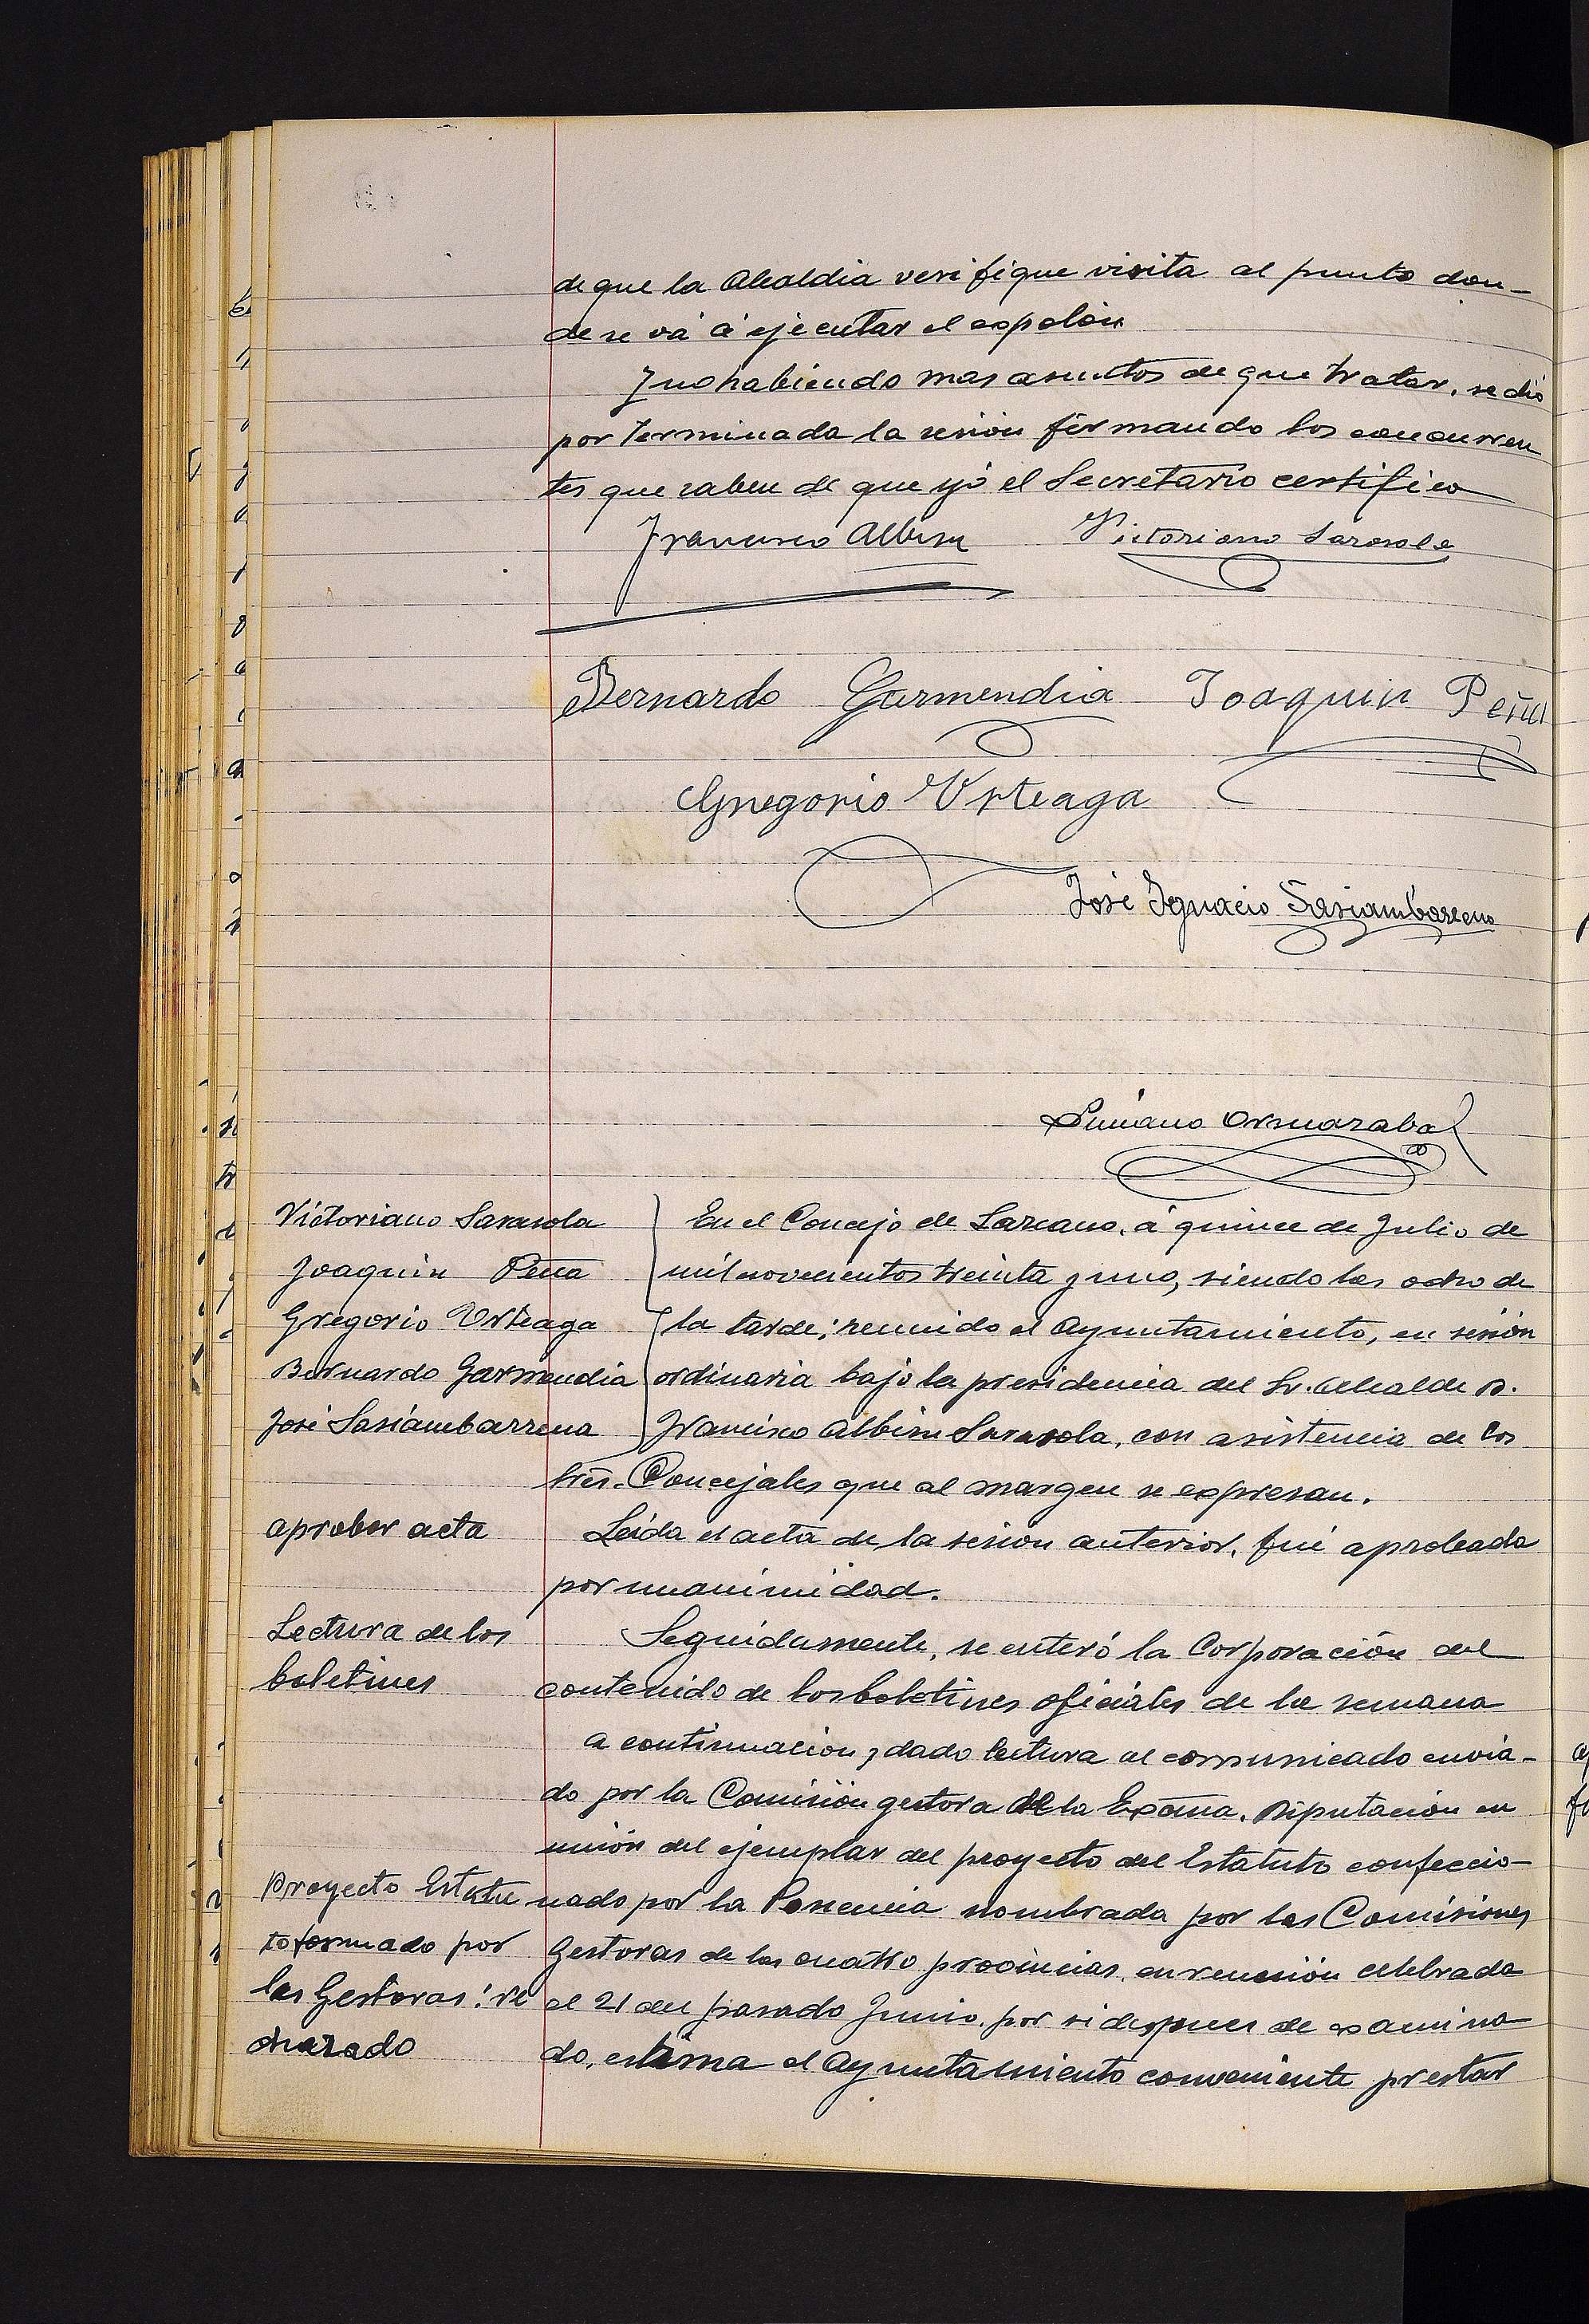 de que la Alcaldia verifique visita al punto don-
de se vá á ejecutar el espolón
Y no habiendo mas asuntos de que tratar, se dió
por terminada la sesión firmando los concurren
tes que saben de que yó el Secretario certifico
Francisco Albisu Victoriano Sarasola
Bernardo Garmendia Joaquin Peña
Gregorio Urteaga
José Ignacio Sasiambarrena
Ormazabal
Victoriano Sarasola
Joaquin Peña
Gregorio Urteaga
Bernardo Garmendia
José Sasiambarrena
En el Concejo de Lazcano, á quince de Julio de
mil novecientos treinta y uno, siendo las ocho de
la tarde; reunido el Ayuntamiento, en sesión
ordinaria bajo la presidencia del Sr. Alcalde D.
Francisco Albisu Sarasola, con asistencia de los
Concejales que al margen se expresan.
aprobar acta
Leida el acta de la sesion anterior, fué aprobada
por unanimidad.
Lectura de los
boletines
Seguidamente, se enteró la Corporación del
contenido de los boletines oficiales de la semana
a continuacion y dado lectura al comunicado envia-
do por la Comisión gestora de la Exma. Diputación en
unión del ejemplar del proyecto del Estatuto confeccio-
Proyecto Estatu
to formado por
las Gestoras: re
chazado
nado por la Ponencia nombrada por las Comisiones
Gestoras de las cuatro provincias, en reunión celebrada
el 21 del pasado Junio, por si despues de examina
do, estima el Ayuntamiento conveniente prestar